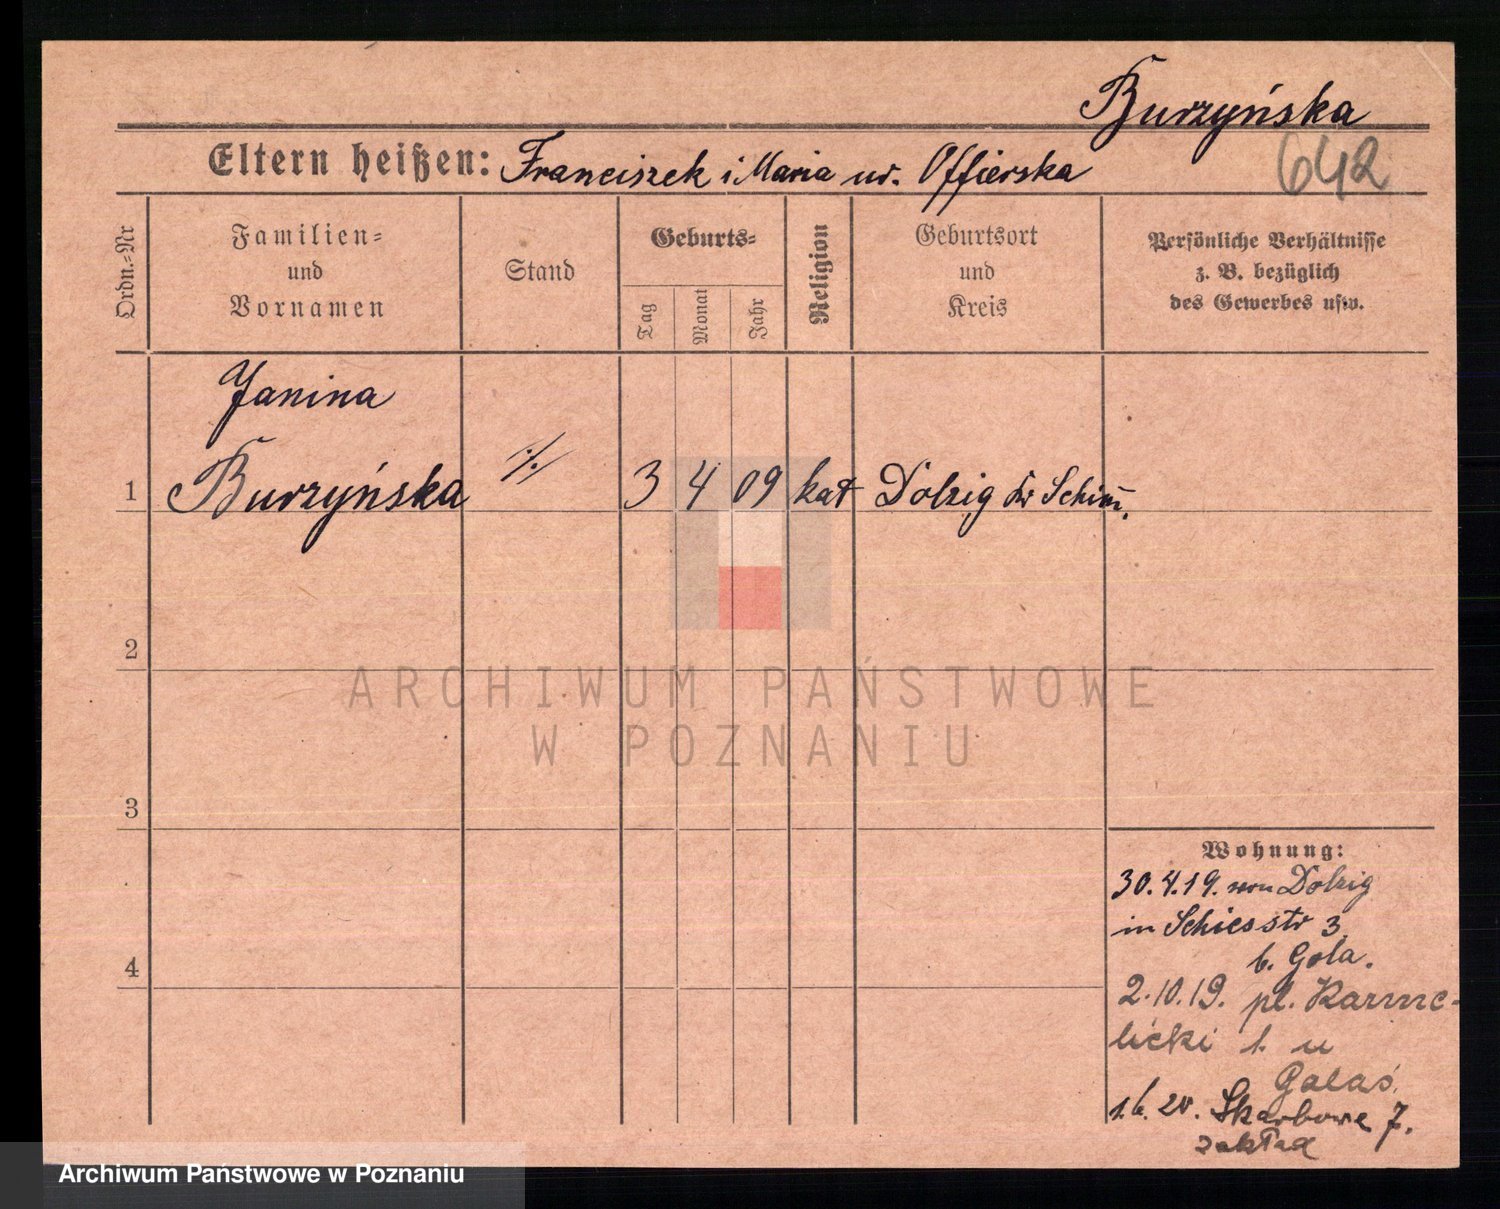 Burzyńska
Eltern heißen: Franciszek i Maria ur. Offierska
642
Ordn.-Nr
Familien-
und
Vornamen
Stand
Geburts-
Tag
Monat
Jahr
Religion
Geburtsort
und
Kreis
Persönliche Verhältnisse
z. B. bezüglich
des Gewerbes usw.
Janina
1 Burzyńska ·/· 3 4 09 kat Dolzig Schrim.
2
3
4
ARCHIWUM PAŃSTWOWE
W POZNANIU
Wohnung:
30.4.19. von Dolzig
in Schiesstr 3
b. Gola.
2.10.19. pl. Karme-
licki 1. u
Galaś.
1.6.20. Skarbowa 7.
zakład
Archiwum Państwowe w Poznaniu